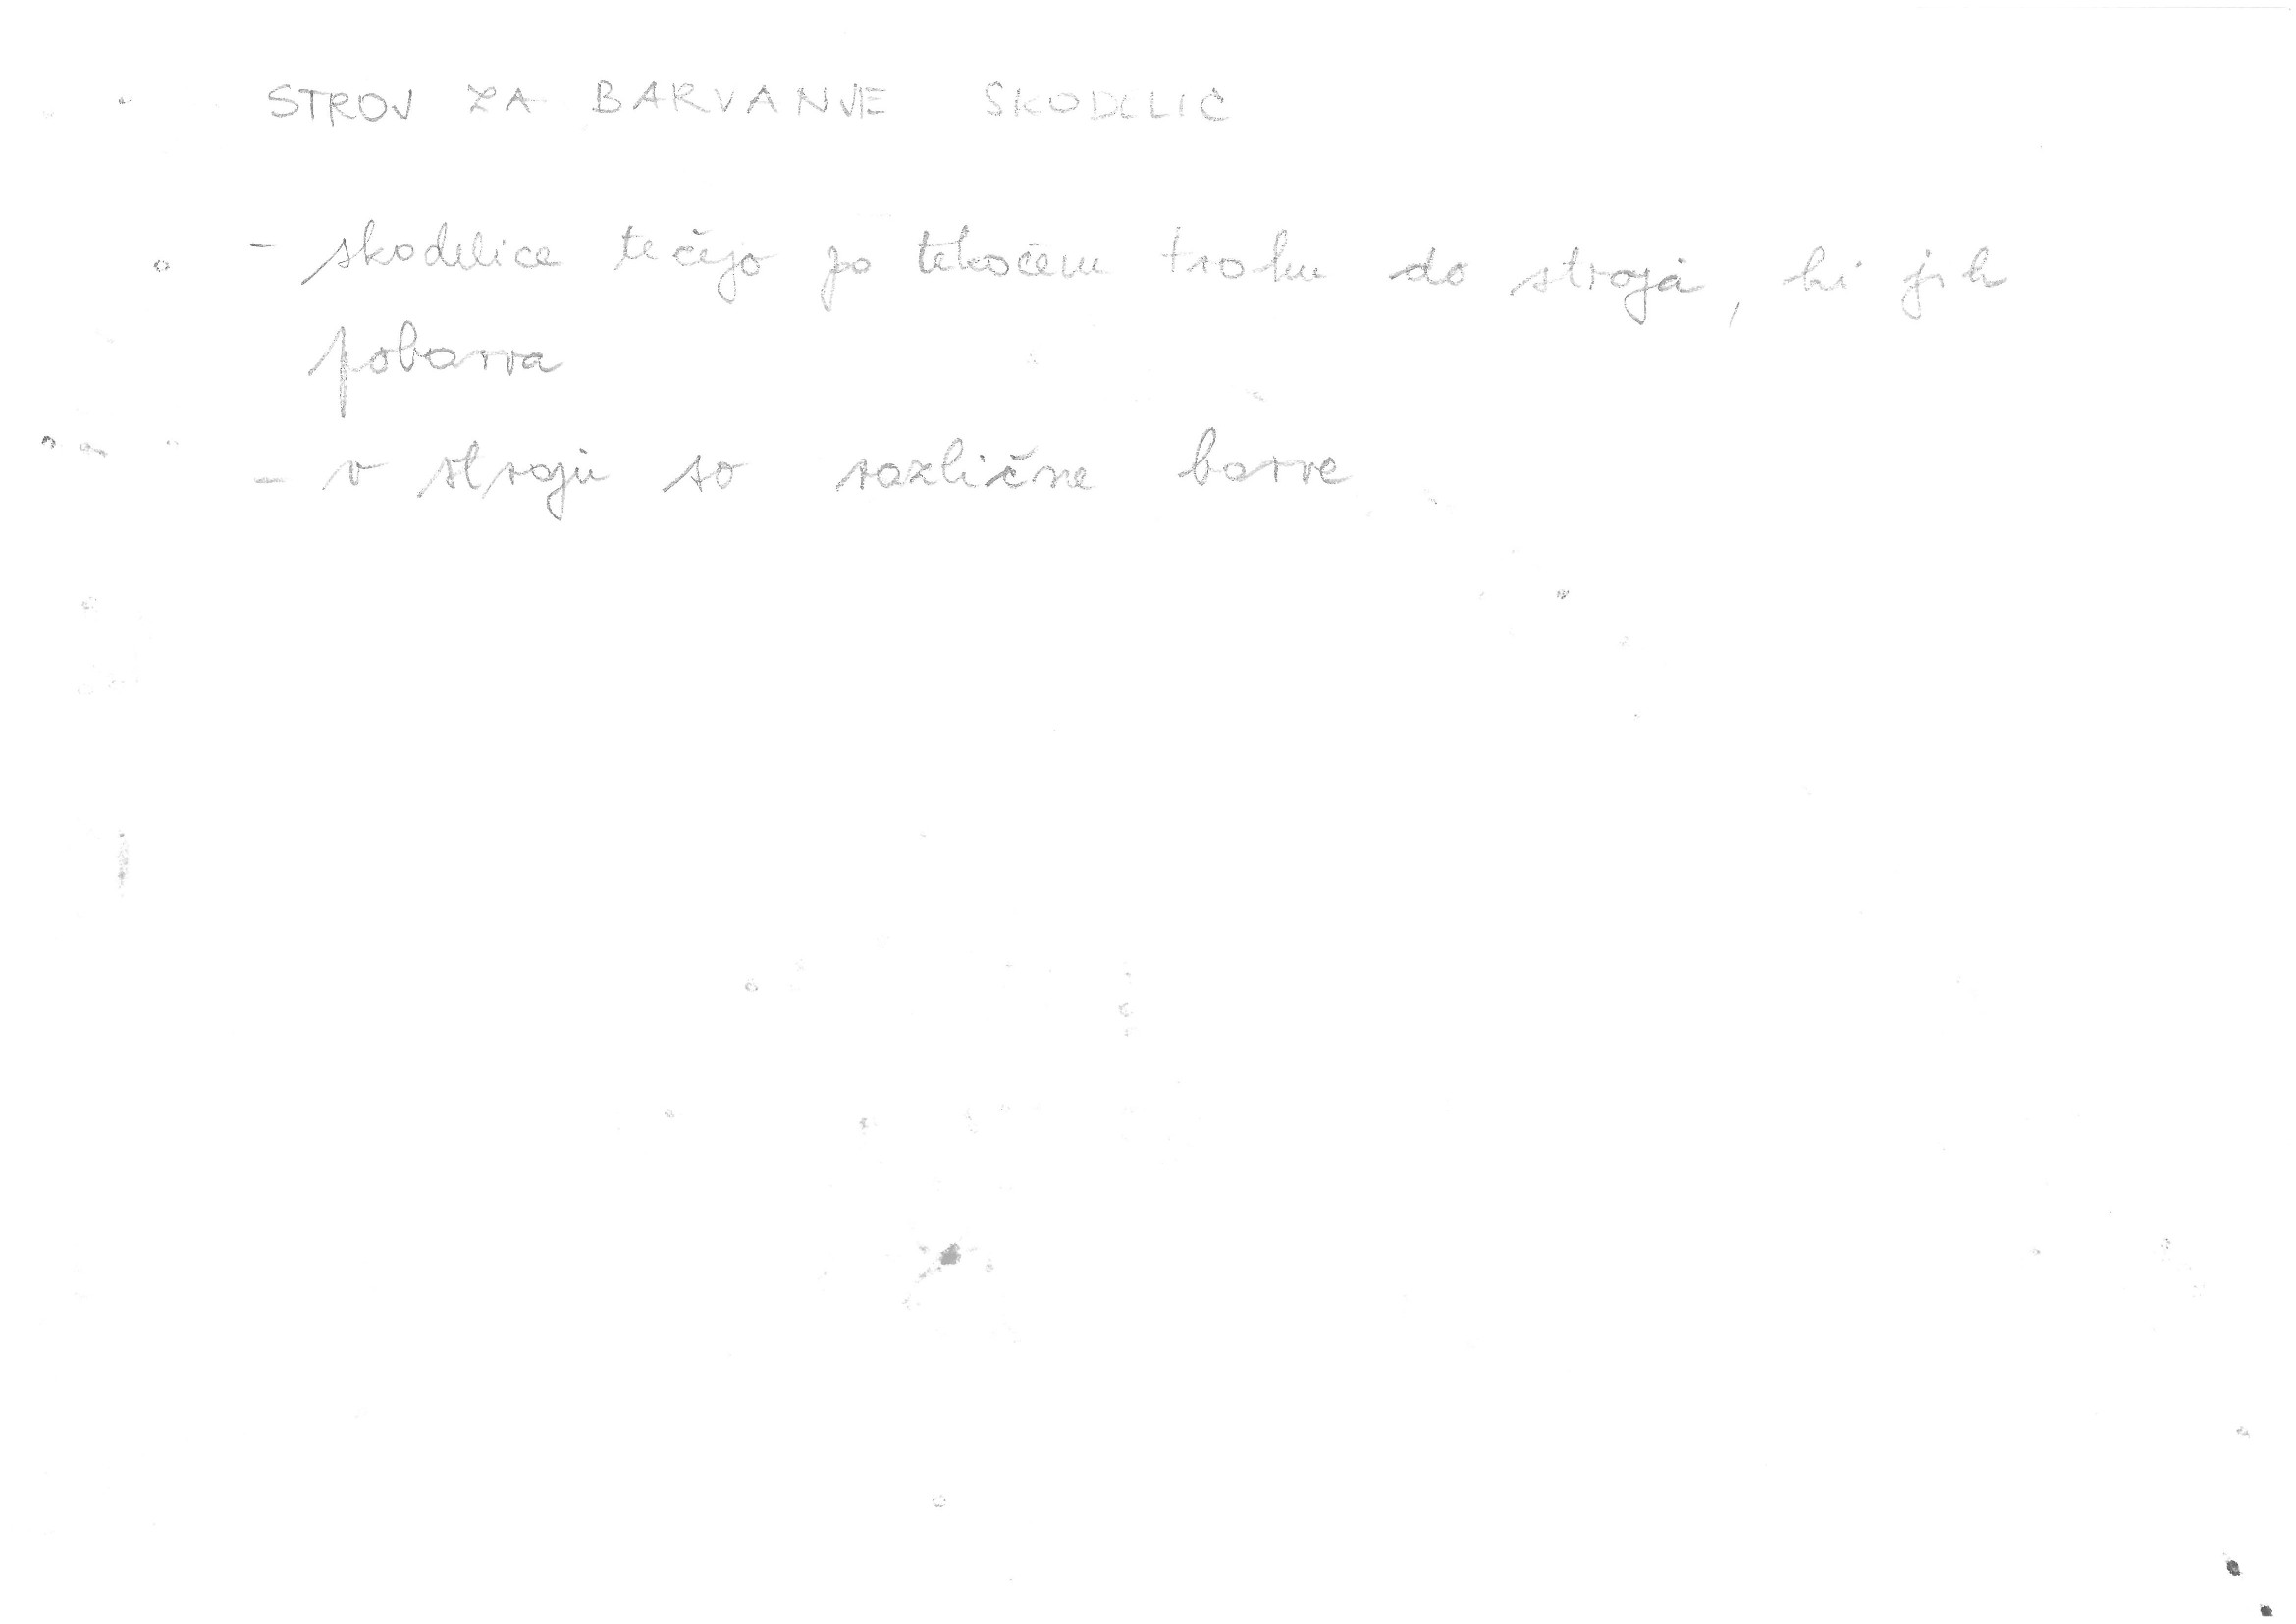 STROJ ZA BARVANJE SKODELIC
- skodelice tečejo po tekočem traku do stroja, ki jih
pobarva
- v stroju so različne barve